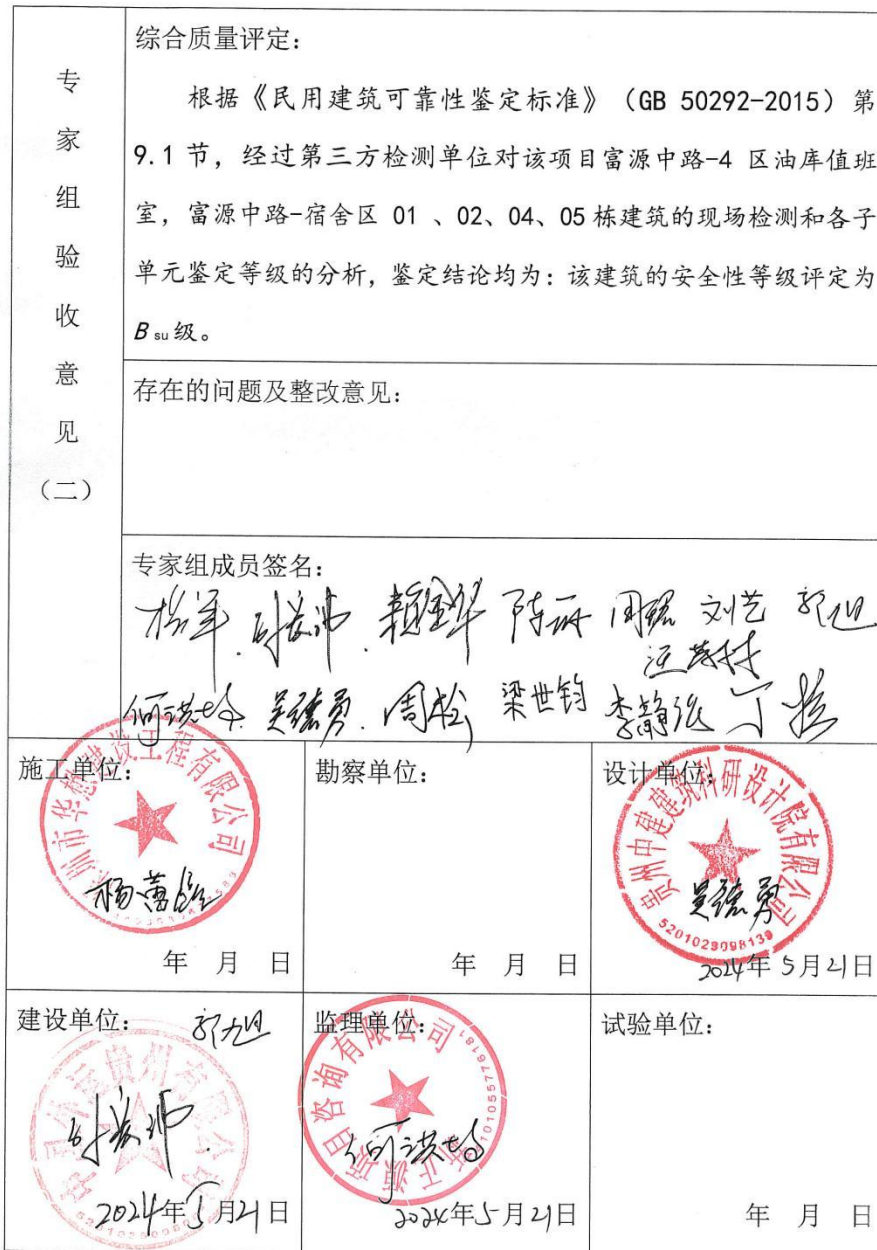 专家组验收意见（二）
综合质量评定：
根据《民用建筑可靠性鉴定标准》（GB 50292-2015）第
9.1 节，经过第三方检测单位对该项目富源中路-4 区油库值班
室，富源中路-宿舍区 01 、02、04、05 栋建筑的现场检测和各子
单元鉴定等级的分析，鉴定结论均为：该建筑的安全性等级评定为
B su 级。
存在的问题及整改意见：
专家组成员签名：
赖金华 刘艺 郭旭
吴德勇 周松 梁世钧
施工单位：
圳市华 建设工程有限公司
年 月 日
勘察单位：
年 月 日
设计单位：
贵州中建建筑科研设计院有限公司
吴德勇
5201029098139
2024年5月21日
建设单位：
郭旭
贵州有限公司
2024年5月21日
监理单位：
项目咨询有限公司
2024年5月21日
试验单位：
年 月 日